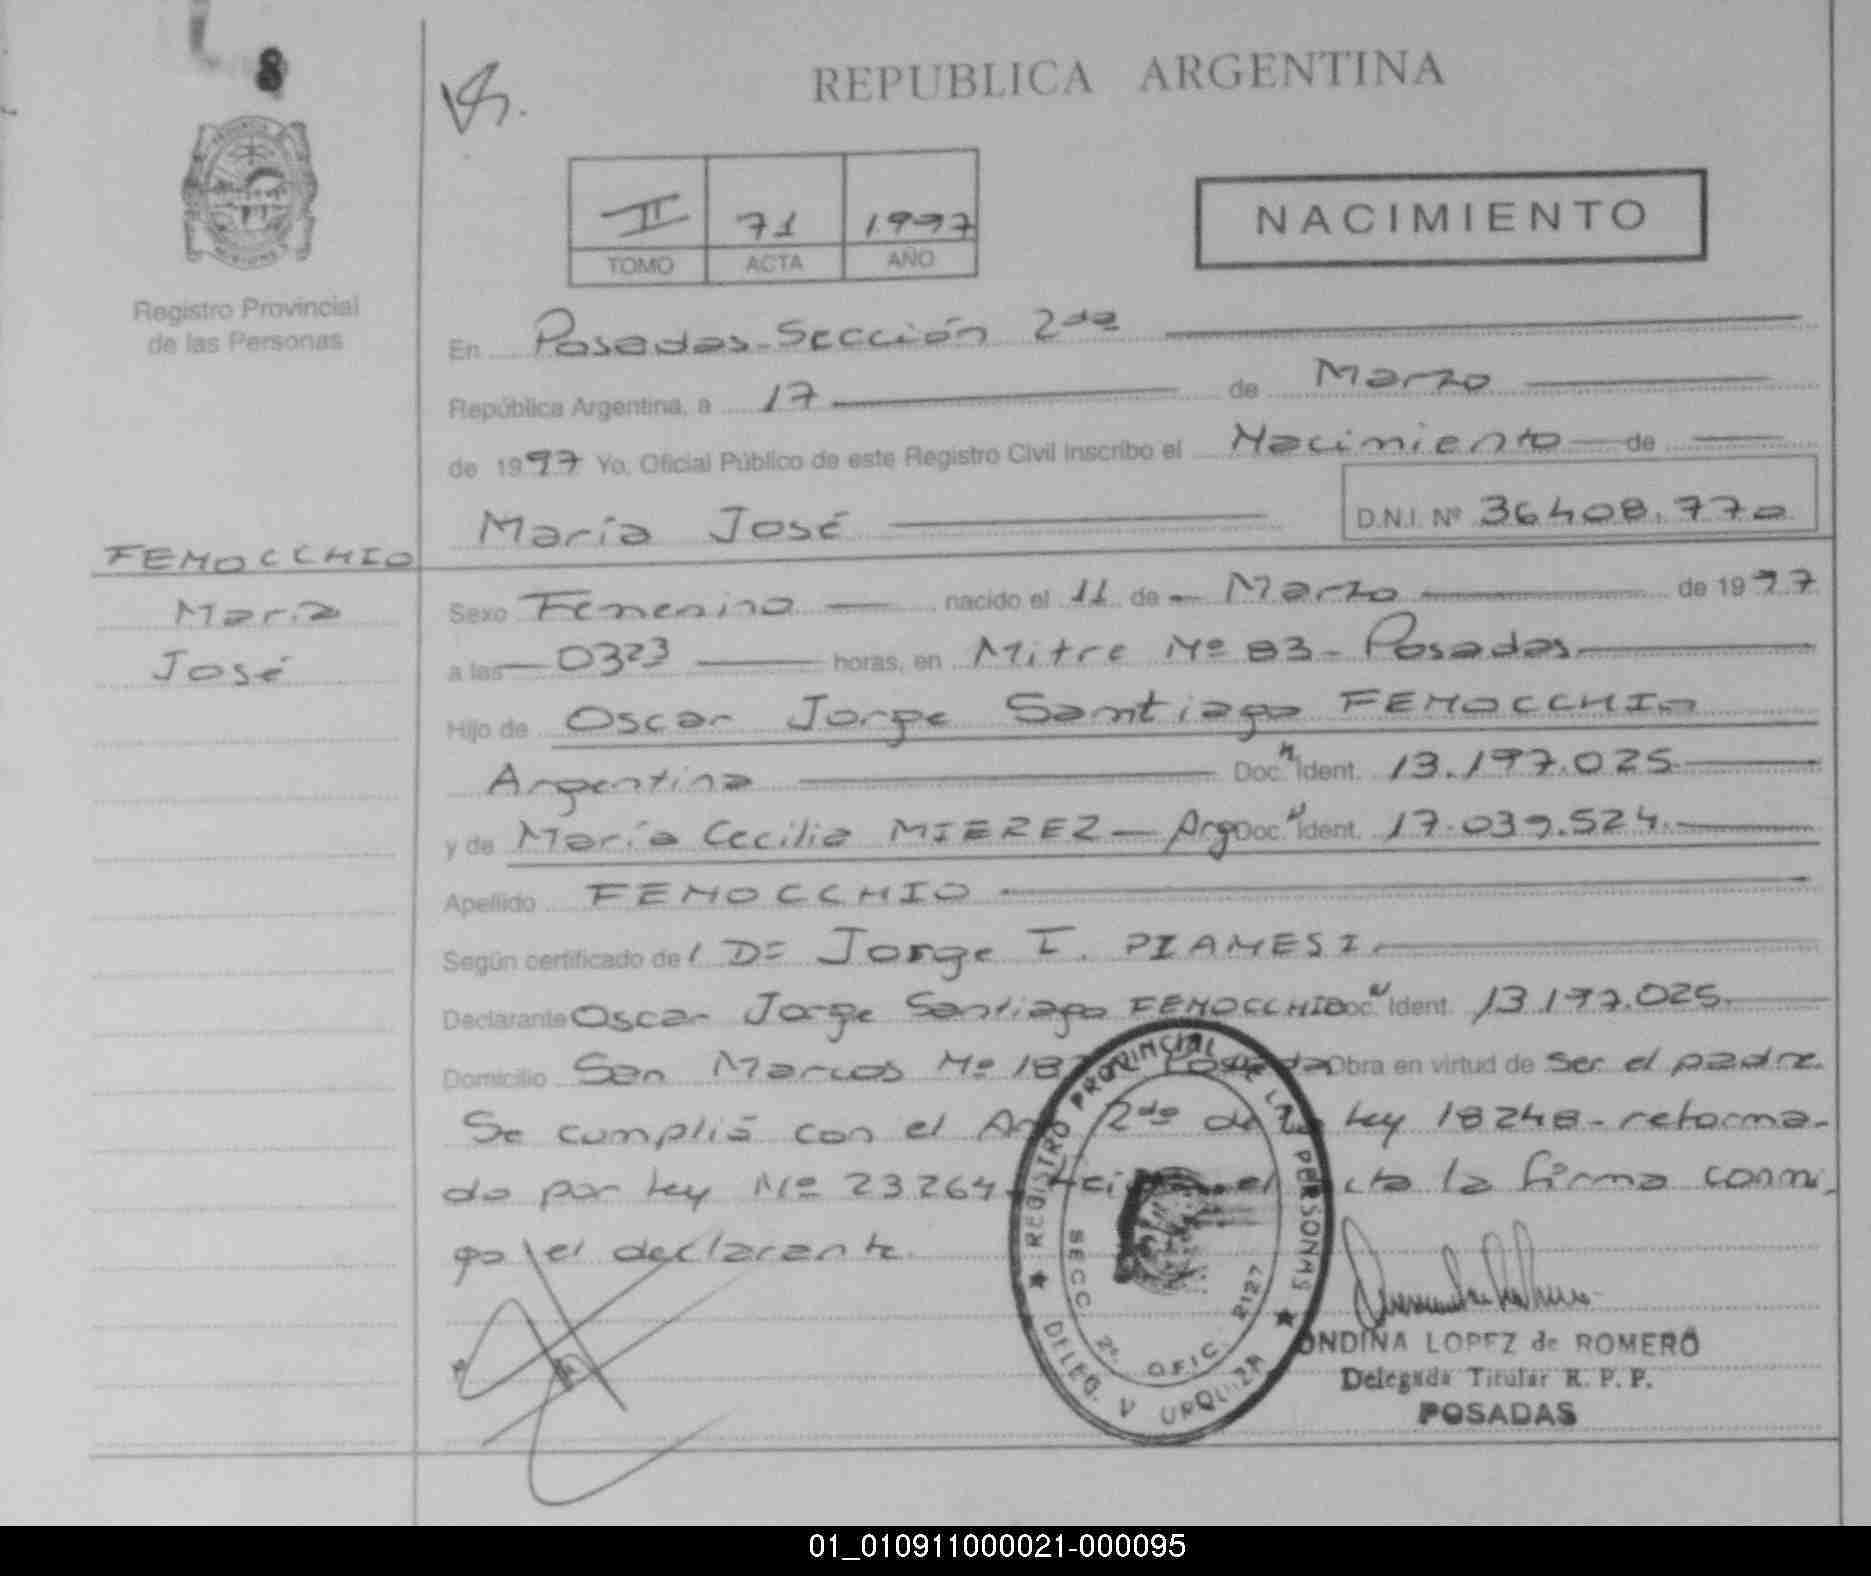 8
REPUBLICA ARGENTINA
II 71 1997
TOMO ACTA AÑO
NACIMIENTO
Registro Provincial
de las Personas
En Posadas-Sección 2da
República Argentina, a 17 de Marzo
de 1997 Yo, Oficial Público de este Registro Civil inscribo el Nacimiento de
María José D.N.I. Nº 36408.770
FEMOCCHIO
María
José
Sexo Femenino nacido el 11 de Marzo de 1997
a las 0323 horas, en Mitre Nº 83- Posadas
Hijo de Oscar Jorge Santiago FEMOCCHIO
Argentina Doc. Ident. 13.197.025
y de María Cecilia MIEREZ - Arg Doc. Ident. 17.039.524.
Apellido FEMOCCHIO
Según certificado de Jorge I. PIAMESI.
Declarante Oscar Jorge Santiago FEMOCCHIO Doc. Ident. 13.197.025.
Domicilio San Marcos Nº Obra en virtud de ser el padre.
Se cumplió con el 2do de Ley 18248-reforma-
do por Ley Nº 23264. la firma conmi-
go el declarante.
REGISTRO PROVINCIAL DE LAS PERSONAS
SECC. 2º. OFIC. 2127
DELEG. V URQUIZA
ONDINA LOPEZ de ROMERO
Delegada Titular R. P. P.
POSADAS
01_010911000021-000095